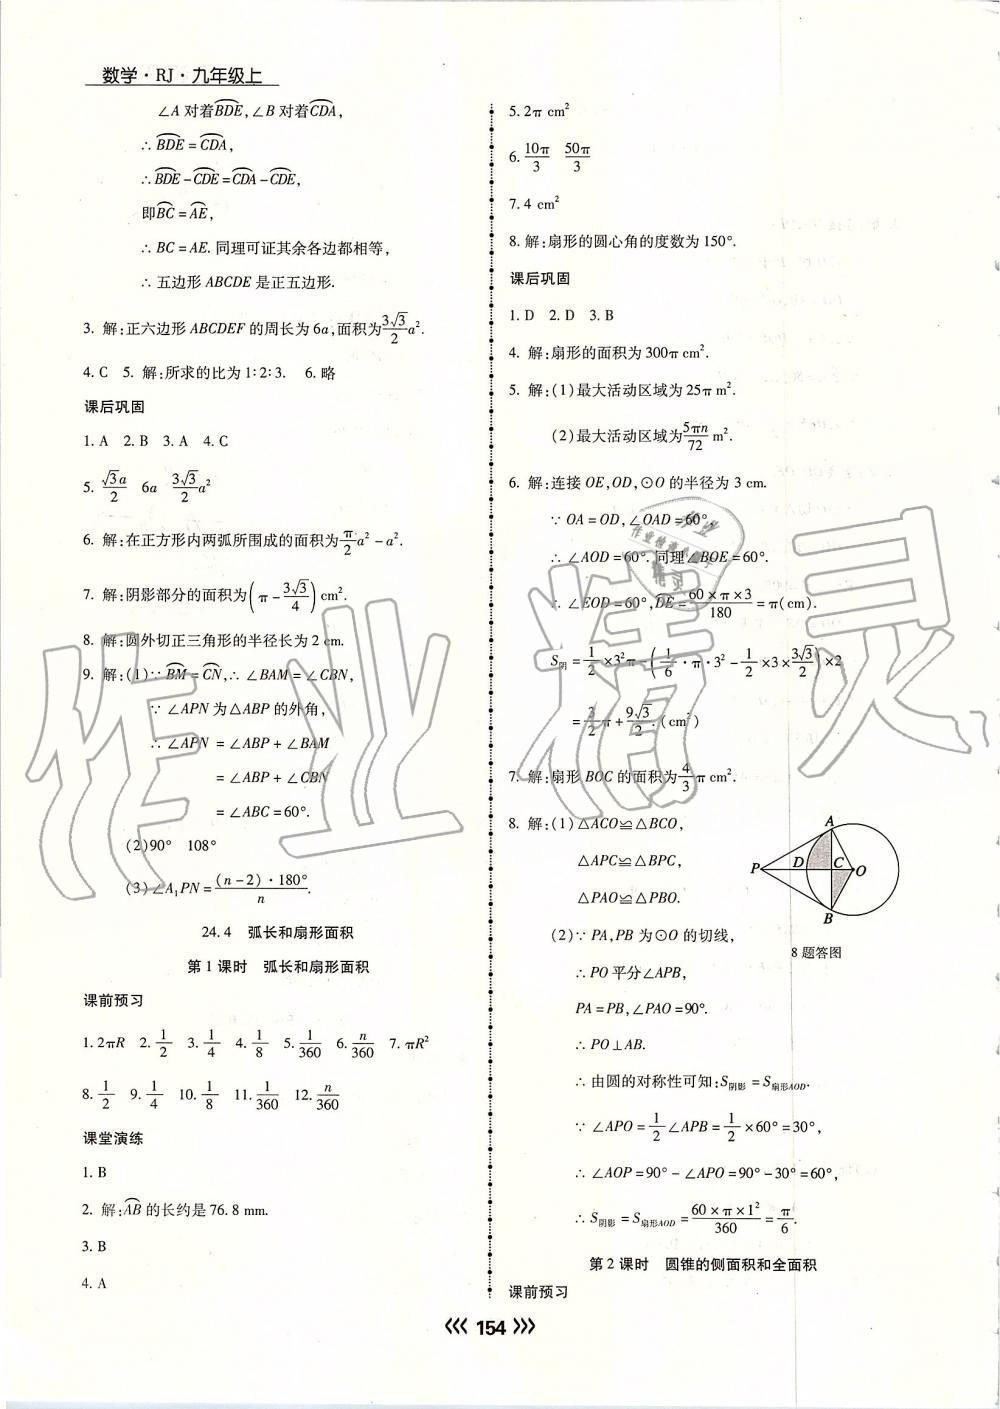 数学·RJ·九年级上
∠A 对着BDE,∠B 对着CDA,
∴ BDE = CDA,
∴ BDE - CDE = CDA - CDE,
即BC = AE,
∴ BC = AE. 同理可证其余各边都相等,
∴ 五边形 ABCDE 是正五边形.
3. 解:正六边形 ABCDEF 的周长为 6a,面积为3√3/2 a².
4. C 5. 解:所求的比为 1∶2∶3. 6. 略
课后巩固
1. A 2. B 3. A 4. C
5. √3a/2 6a 3√3/2 a²
6. 解:在正方形内两弧所围成的面积为π/2 a² - a².
7. 解:阴影部分的面积为(π - 3√3/4) cm².
8. 解:圆外切正三角形的半径长为 2 cm.
9. 解:(1)∵ BM = CN,∴ ∠BAM = ∠CBN,
∵ ∠APN 为△ABP 的外角,
∴ ∠APN = ∠ABP + ∠BAM
= ∠ABP + ∠CBN
= ∠ABC = 60°.
(2)90° 108°
(3)∠A₁PN = (n-2)·180°/n.
24.4 弧长和扇形面积
第 1 课时 弧长和扇形面积
课前预习
1. 2πR 2. 1/2 3. 1/4 4. 1/8 5. 1/360 6. n/360 7. πR²
8. 1/2 9. 1/4 10. 1/8 11. 1/360 12. n/360
课堂演练
1. B
2. 解:AB 的长约是 76.8 mm.
3. B
4. A
5. 2π cm²
6. 10π/3 50π/3
7. 4 cm²
8. 解:扇形的圆心角的度数为 150°.
课后巩固
1. D 2. D 3. B
4. 解:扇形的面积为 300π cm².
5. 解:(1)最大活动区域为 25π m².
(2)最大活动区域为5πn/72 m².
6. 解:连接 OE,OD,⊙O 的半径为 3 cm.
∵ OA = OD,∠OAD = 60°,
∴ ∠AOD = 60°. 同理∠BOE = 60°.
∴ ∠EOD = 60°,DE = 60×π×3/180 = π(cm).
S阴 = 1/2 ×3²π - (1/6·π·3² - 1/2×3×3√3/2)×2
= 3/2π + 9√3/2.(cm²)
7. 解:扇形 BOC 的面积为4/3π cm².
8. 解:(1)△ACO≌△BCO,
△APC≌△BPC,
△PAO≌△PBO.
A
P D C O
B
8 题答图
(2)∵ PA,PB 为⊙O 的切线,
∴ PO 平分∠APB,
PA = PB,∠PAO = 90°.
∴ PO⊥AB.
∴ 由圆的对称性可知:S阴影 = S扇形AOD.
∵ ∠APO = 1/2∠APB = 1/2×60° = 30°,
∴ ∠AOP = 90° - ∠APO = 90° - 30° = 60°,
∴ S阴影 = S扇形AOD = 60×π×1²/360 = π/6.
第 2 课时 圆锥的侧面积和全面积
课前预习
⟪⟨ 154 ⟩⟫
作业精灵